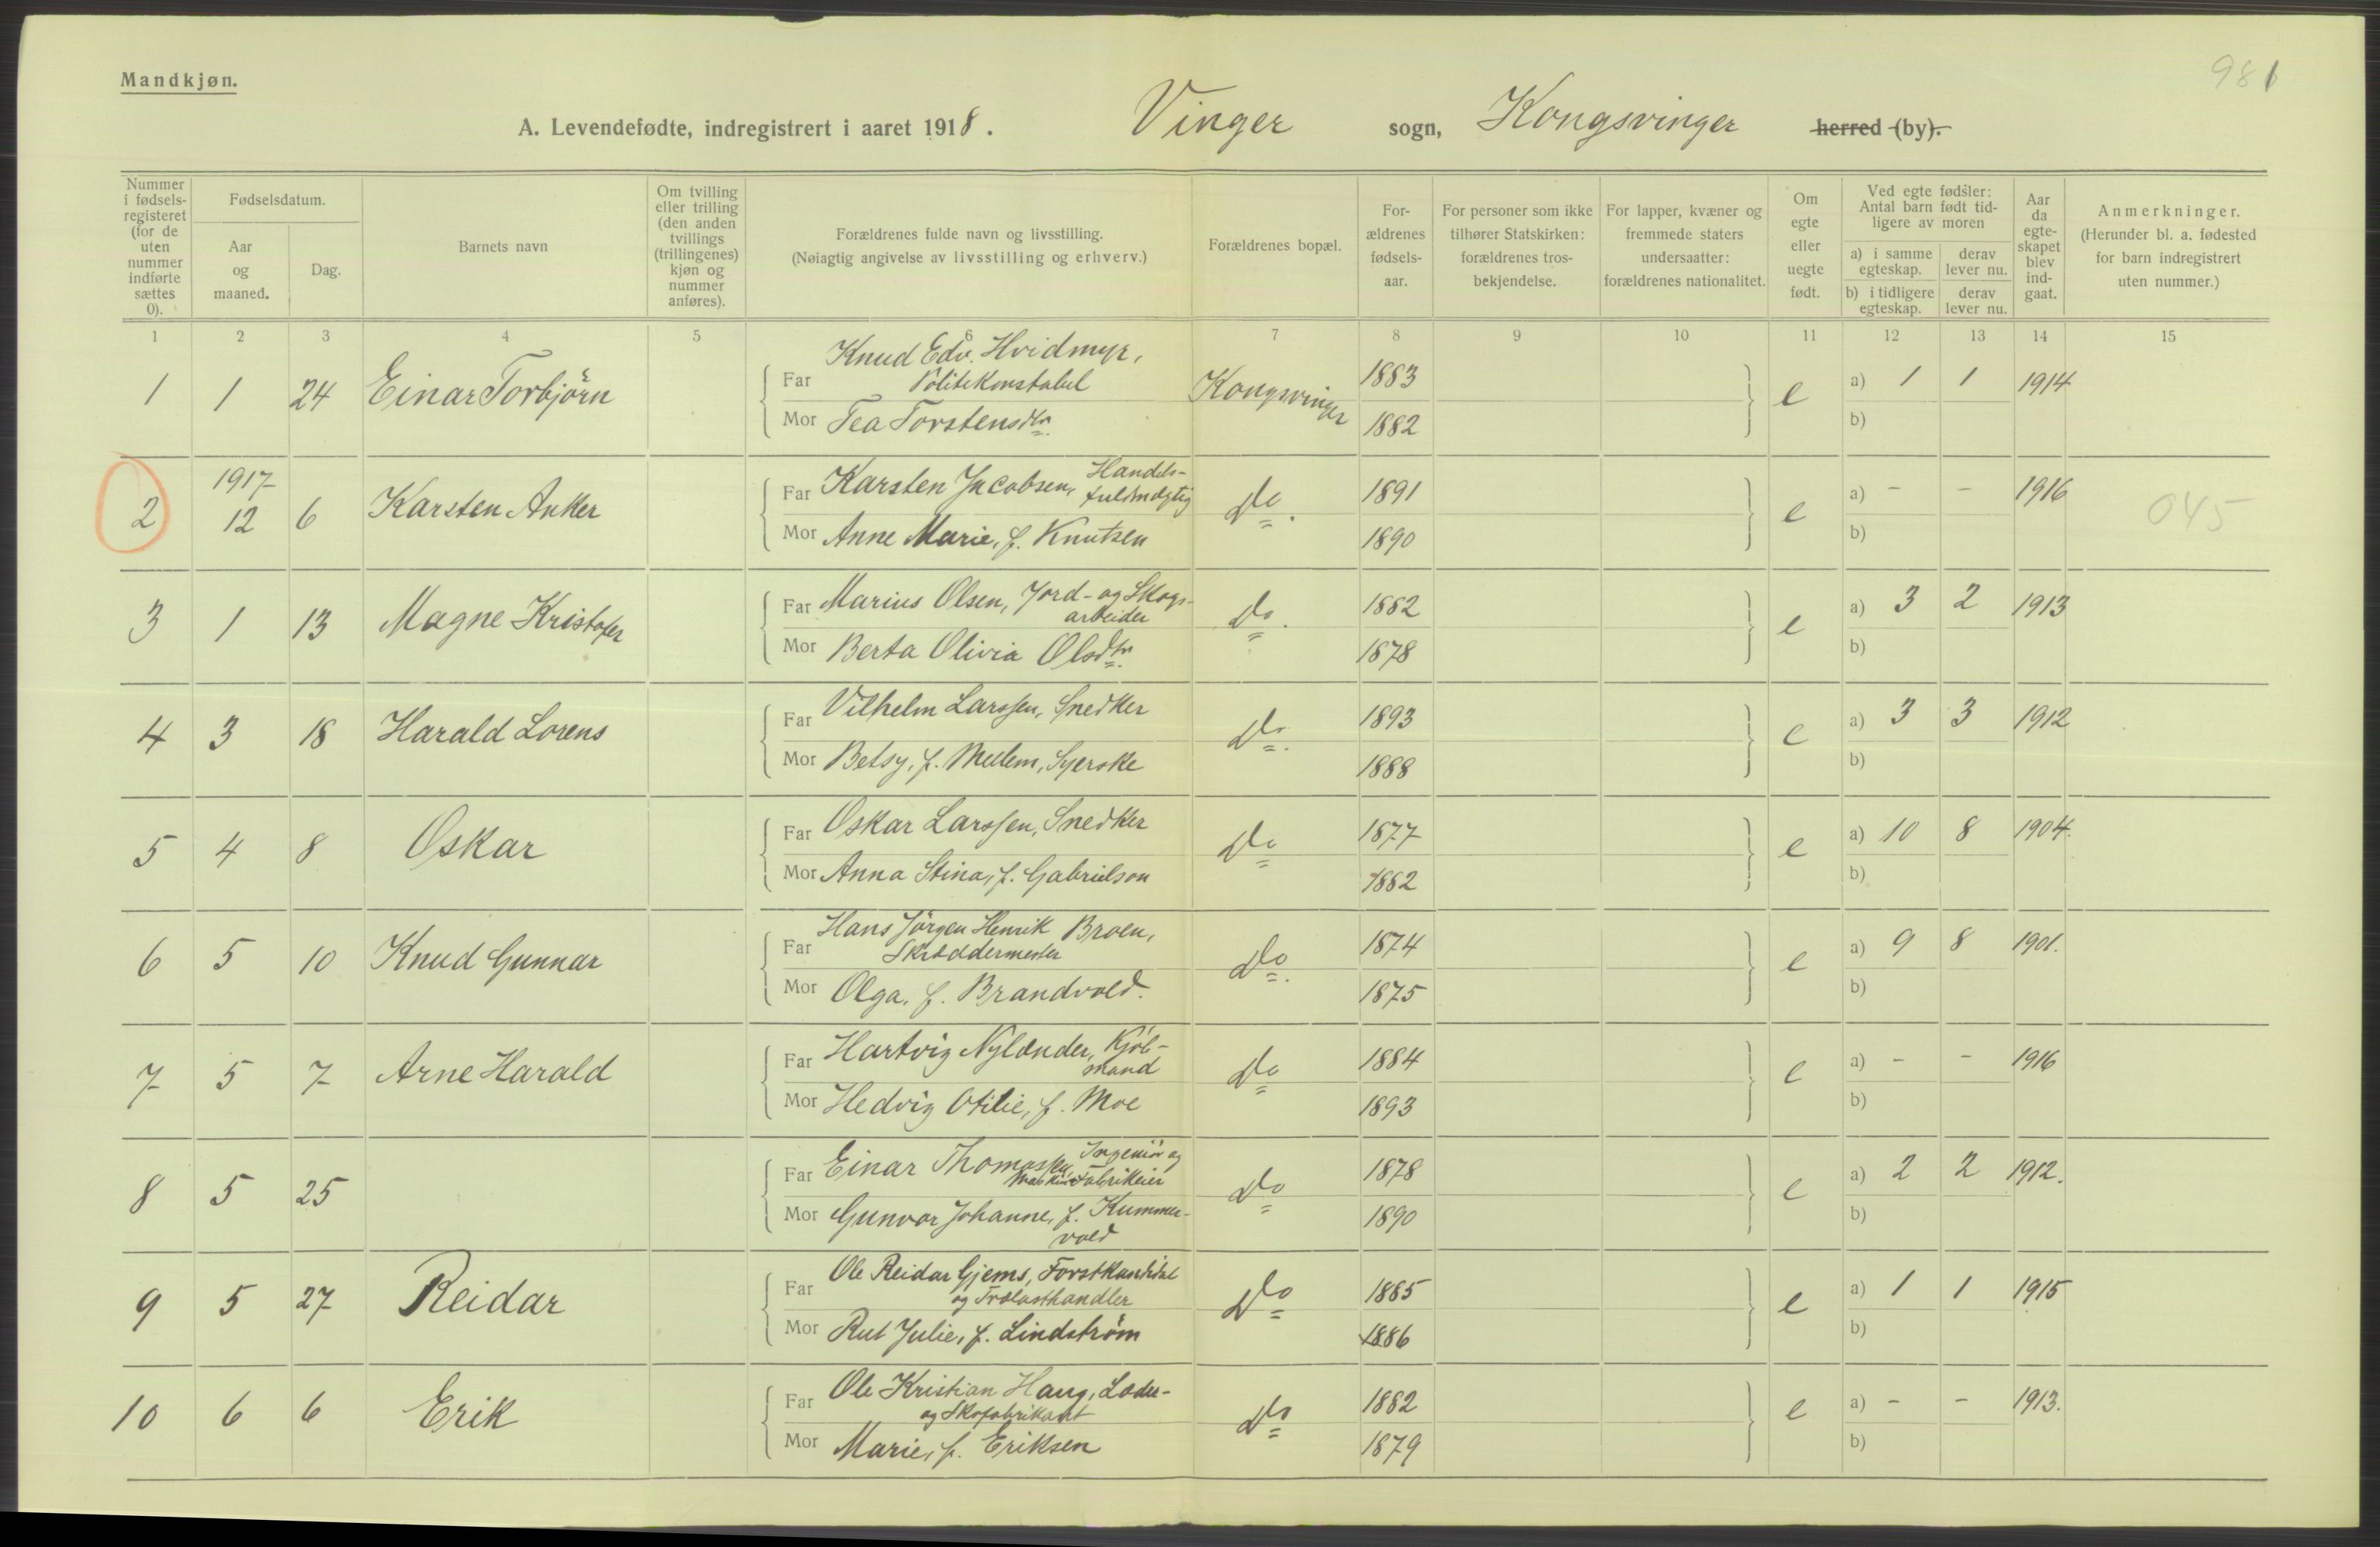 981
Mandkjøn.
A. Levendefødte, indregistrert i aaret 1918. Vinger sogn, Kongsvinger herred (by).
Nummer i fødsels-registeret (for de uten nummer indførte sættes 0).
Fødselsdatum.
Aar og maaned.
Dag.
Barnets navn
Om tvilling eller trilling (den anden tvillings (trillingenes) kjøn og nummer anføres).
Forældrenes fulde navn og livsstilling.
(Nøiagtig angivelse av livsstilling og erhverv.)
Forældrenes bopæl.
For-ældrenes fødsels-aar.
For personer som ikke tilhører Statskirken: forældrenes tros-bekjendelse.
For lapper, kvæner og fremmede staters undersaatter: forældrenes nationalitet.
Om egte eller uegte født.
Ved egte fødsler: Antal barn født tid-ligere av moren
a) i samme egteskap.
derav lever nu.
b) i tidligere egteskap.
derav lever nu.
Aar da egte-skapet blev ind-gaat.
Anmerkninger.
(Herunder bl. a. fødested for barn indregistrert uten nummer.)
1 2 3 4 5 6 7 8 9 10 11 12 13 14 15
1 1 24 Einar Torbjörn Far Knud Edv. Hvidmyr, Politikonstabel Kongsvinger 1883 e a) 1 1 1914
Mor Tea Torstensdtr. 1882 b)
2 1917 12 6 Karsten Anker Far Karsten Jacobsen, Handels-fuldmægtig Do. 1891 e a) - - 1916 045
Mor Anne Marie, f. Knutsen 1890 b)
3 1 13 Magne Kristofer Far Marius Olsen, Jord- og Skogs-arbeider Do. 1882 e a) 3 2 1913
Mor Berta Olivia Olsdtr. 1878 b)
4 3 18 Harald Lorens Far Vilhelm Larssen, Snedker Do. 1893 e a) 3 3 1912
Mor Betsy, f. Mellem, Syerske 1888 b)
5 4 8 Oskar Far Oskar Larssen, Snedker Do 1877 e a) 10 8 1904.
Mor Anna Stina, f. Gabrielson 1882 b)
6 5 10 Knud Gunnar Far Hans Jörgen Henrik Broen, Skræddermester Do. 1874 e a) 9 8 1901.
Mor Olga, f. Brandvold. 1875 b)
7 5 7 Arne Harald Far Hartvig Nylænder, Kjöb-mand Do 1884 e a) - - 1916
Mor Hedvig Otilie, f. Moe 1893 b)
8 5 25 Far Einar Thomassen, Ingeniör og Fabrikeier Do 1878 e a) 2 2 1912.
Mor Gunvor Johanne, f. Kummer-vold 1890 b)
9 5 27 Reidar Far Ole Reidar Gjems, Forstkandidat og Trælasthandler Do 1885 e a) 1 1 1915
Mor Rut Julie, f. Lindström 1886 b)
10 6 6 Erik Far Ole Kristian Haug, Læder- og Skofabrikant Do 1882 e a) - - 1913.
Mor Marie, f. Eriksen 1879 b)